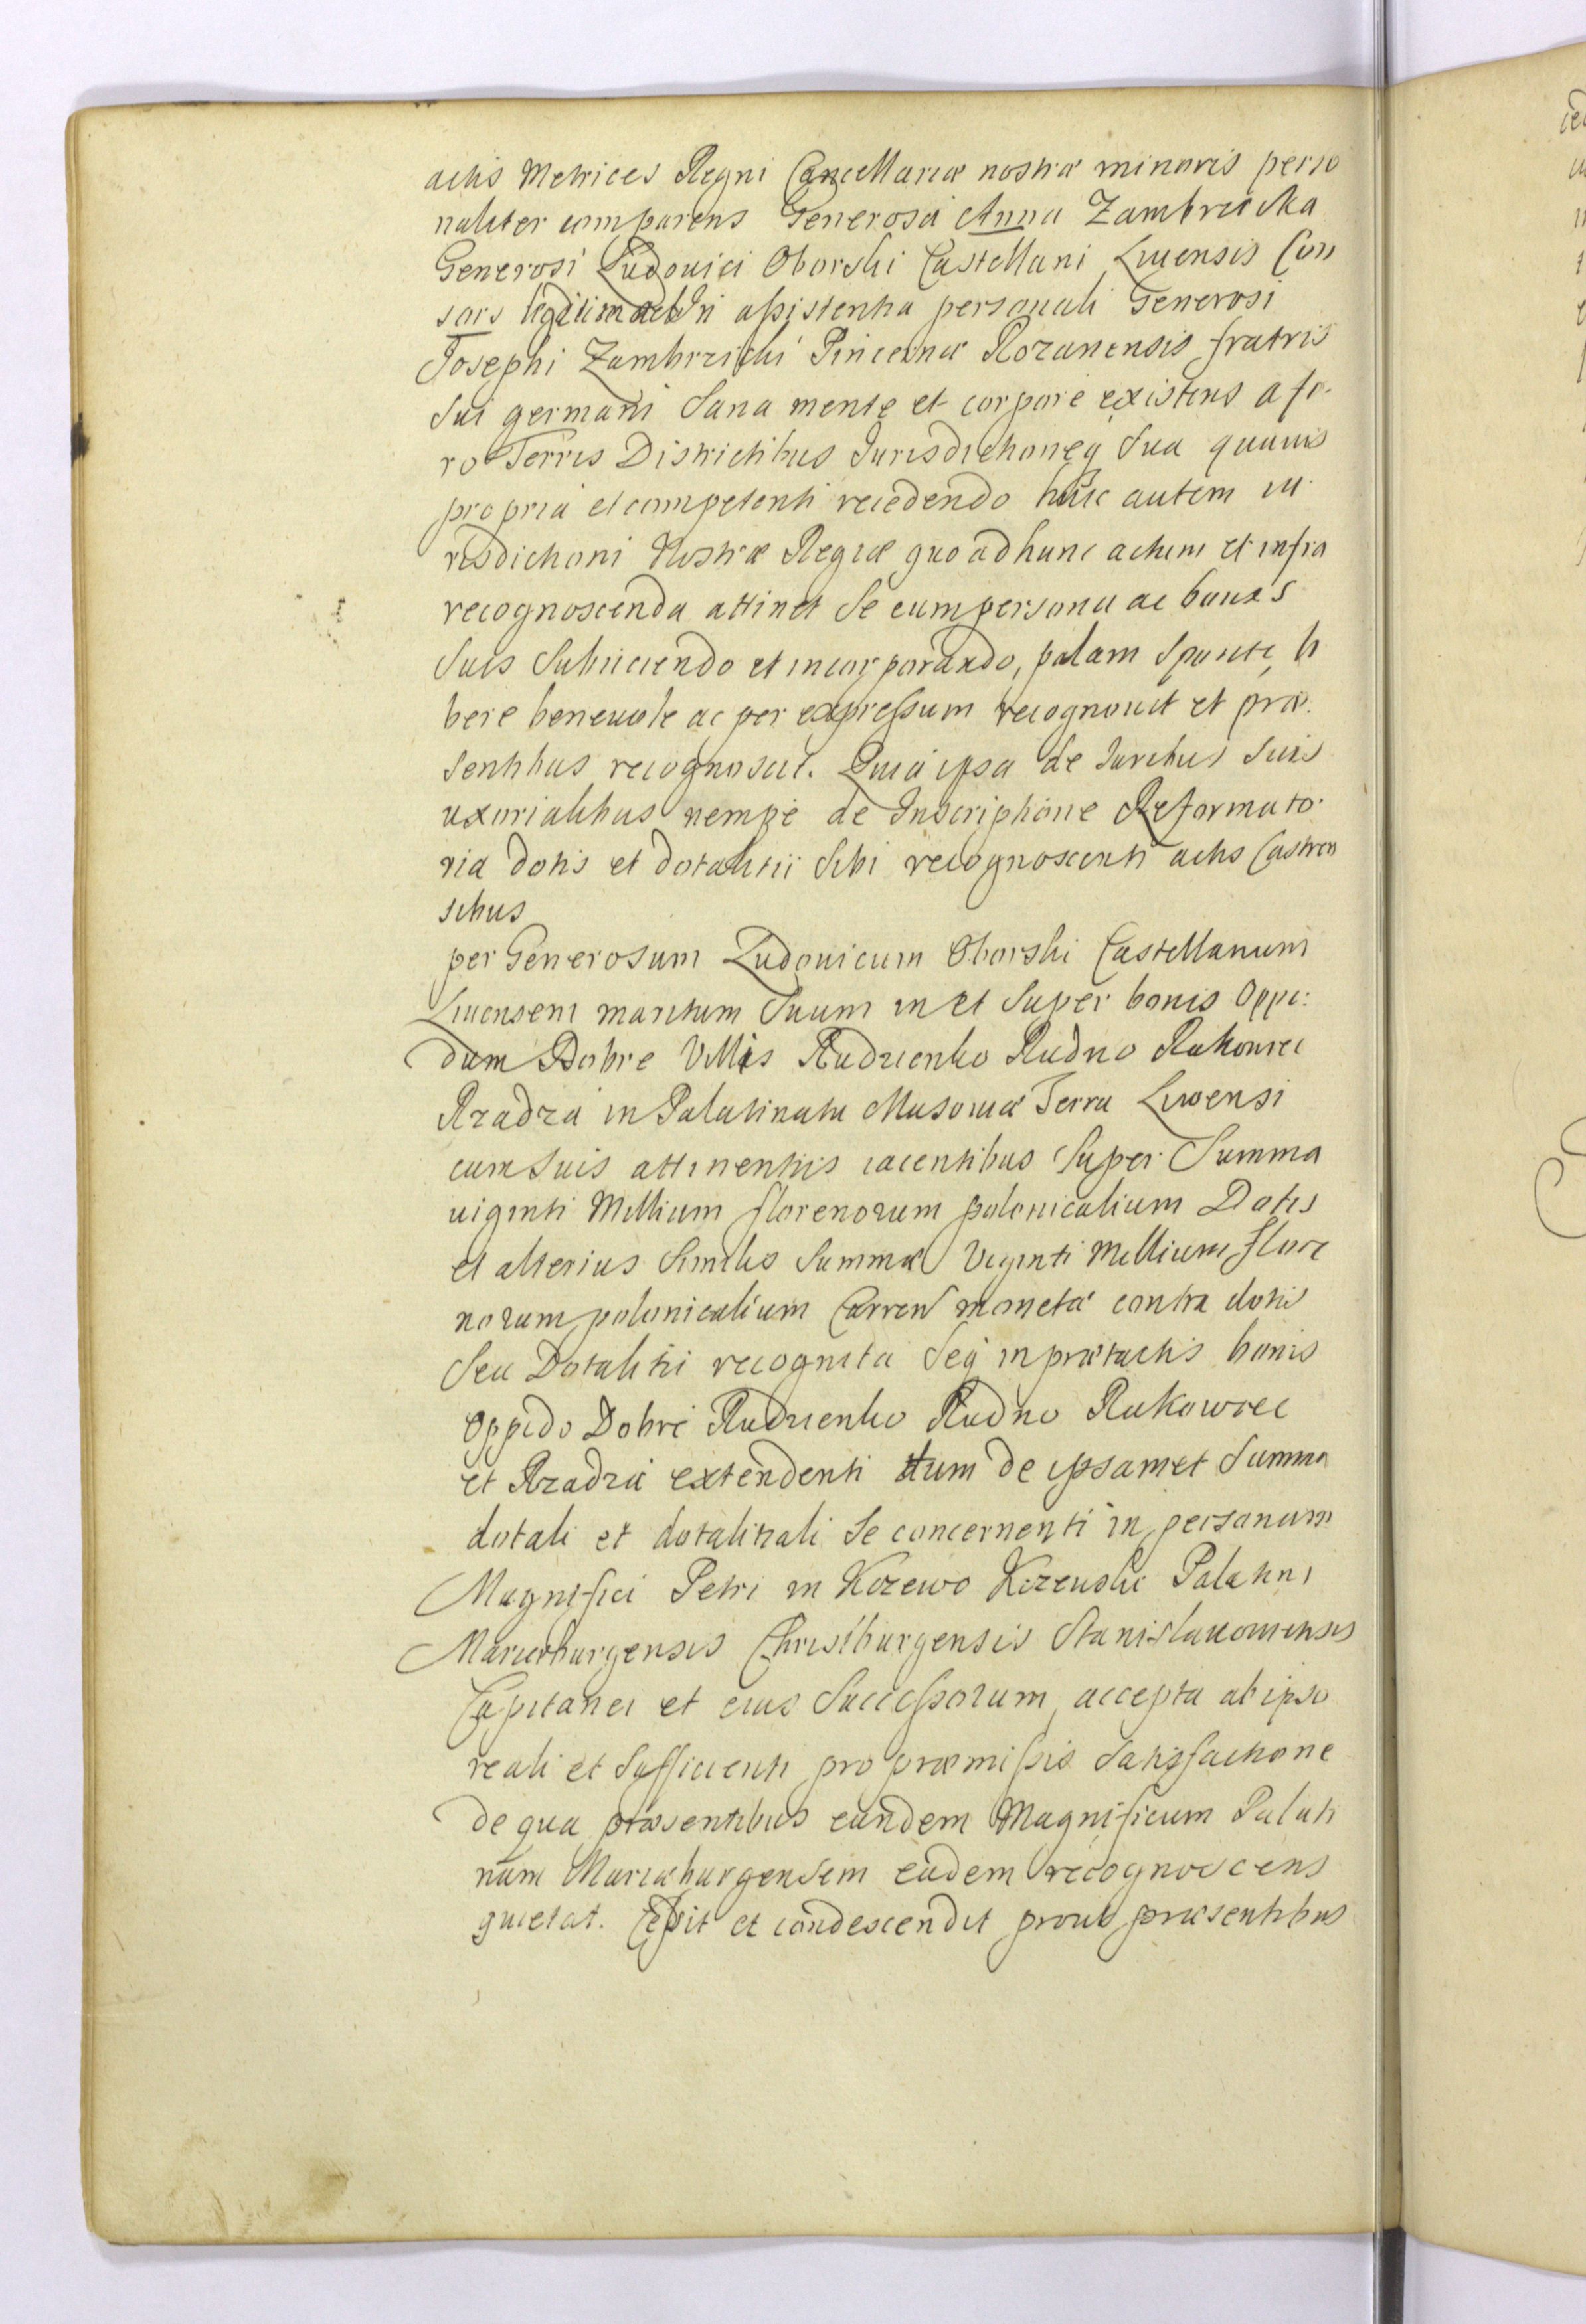 actis Metrices Regni Cancellariæ nostræ minoris perso
naliter comparens Generosa Anna Zambrzicka
Generosi Ludouici Oborski Castellani Liuensis Con
sors legitima et in assistentia personali Generosi
Josephi Zambrzicki Pincernæ Rozanensis fratris
sui germani Sana mente et corpore existens a fo-
ro Terris Districtibus Jurisdictioneq sua quauis
propria et competenti recedendo huic autem iu
risdictioni Nostræ Regiæ quo ad hunc actum et infra
recognoscenda attinet Se cum persona ac bonis
Suis Subiiciendo et incorporando, palam Sponte, li
bere beneuole ac per expressum recognouit et præ-
sentibus recognoscit. Quia ipsa de Juribus Suis
uxorialibus nempe de Inscriptione Reformato-
ria dotis et dotalitii Sibi recognoscenti actis Castren
sibus
per Generosum Ludouicum Oborski Castellanum
Liuensem maritum Suum in et Super bonis Oppi:
dum Dobre Villis Rudzienko Rudno Rakowiec
Rzadza in Palatinatu Masouiæ Terra Liwensi
cum Suis attinentiis iacentibus Super Summa
uiginti Millium florenorum polonicalium Dotis
et alterius Similis Summæ Viginti Millium flore
norum polonicalium Curren monetæ contra dotis
Seu Dotalitii recognita Seq in prætactis bonis
Oppido Dobre Rudzienko Rudno Rakowiec
et Rzadza extendenti tum de ipsamet Summa
dotali et dotalitiali Se concernenti in personam
Magnifici Petri in Kczewo Kczewski Palatini
Mariæburgensis Christburgensis Stanislauouiensis
Capitanei et eius Successorum, accepta ab ipso
reali et Sufficienti pro præmissis Satisfactione
de qua præsentibus eundem Magnificum Palati
num Mariæburgensem eadem recognoscens
quietat. Cessit et condescendit prout præsentibus